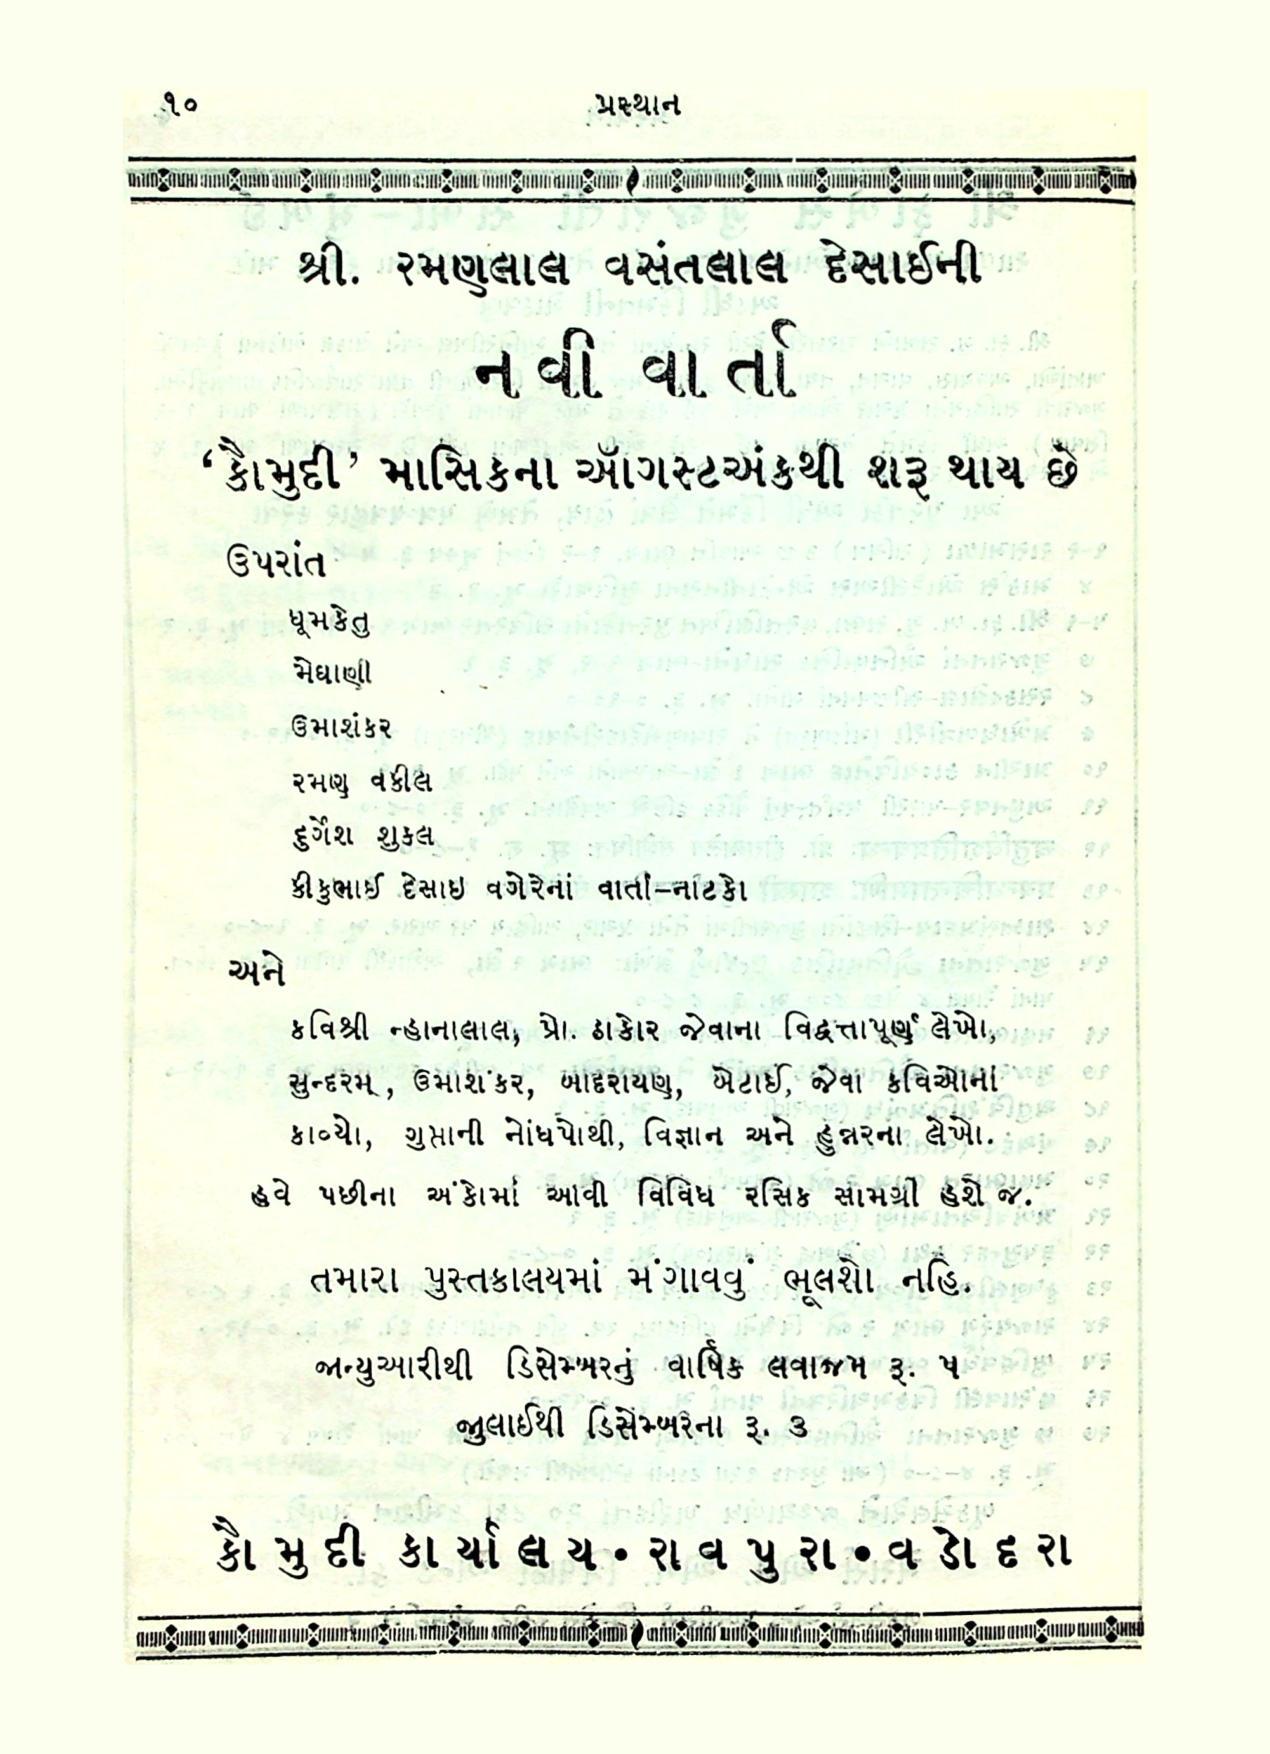 ૧૦
પ્રસ્થાન
શ્રી. રમણલાલ વસંતલાલ દેસાઈની
નવી વાર્તા
‘કૌમુદી’ માસિકના ઑગસ્ટઅંકથી શરૂ થાય છે
ઉપરાંત
ધૂમકેતુ
મેઘાણી
ઉમાશંકર
રમણ વકીલ
દુર્ગેશ શુકલ
કીકુભાઈ દેસાઇ વગેરેનાં વાર્તા–નાટકો
અને
કવિશ્રી ન્હાનાલાલ, પ્રો. ઠાકોર જેવાના વિદ્વત્તાપૂર્ણ લેખો,
સુન્દરમ્, ઉમાશંકર, બાદરાયણ, બેટાઈ, જેવા કવિઓનાં
કાવ્યો, ગુપ્તાની નોંધપોથી, વિજ્ઞાન અને હુન્નરના લેખો.
હવે પછીના અંકોમાં આવી વિવિધ રસિક સામગ્રી હશે જ.
તમારા પુસ્તકાલયમાં મંગાવવું ભૂલશો નહિ.
જાન્યુઆરીથી ડિસેમ્બરનું વાર્ષિક લવાજમ રૂ. ૫
જુલાઈથી ડિસેમ્બરના રૂ. ૩
કૌમુદી કાર્યાલય • રાવપુરા • વડોદરા